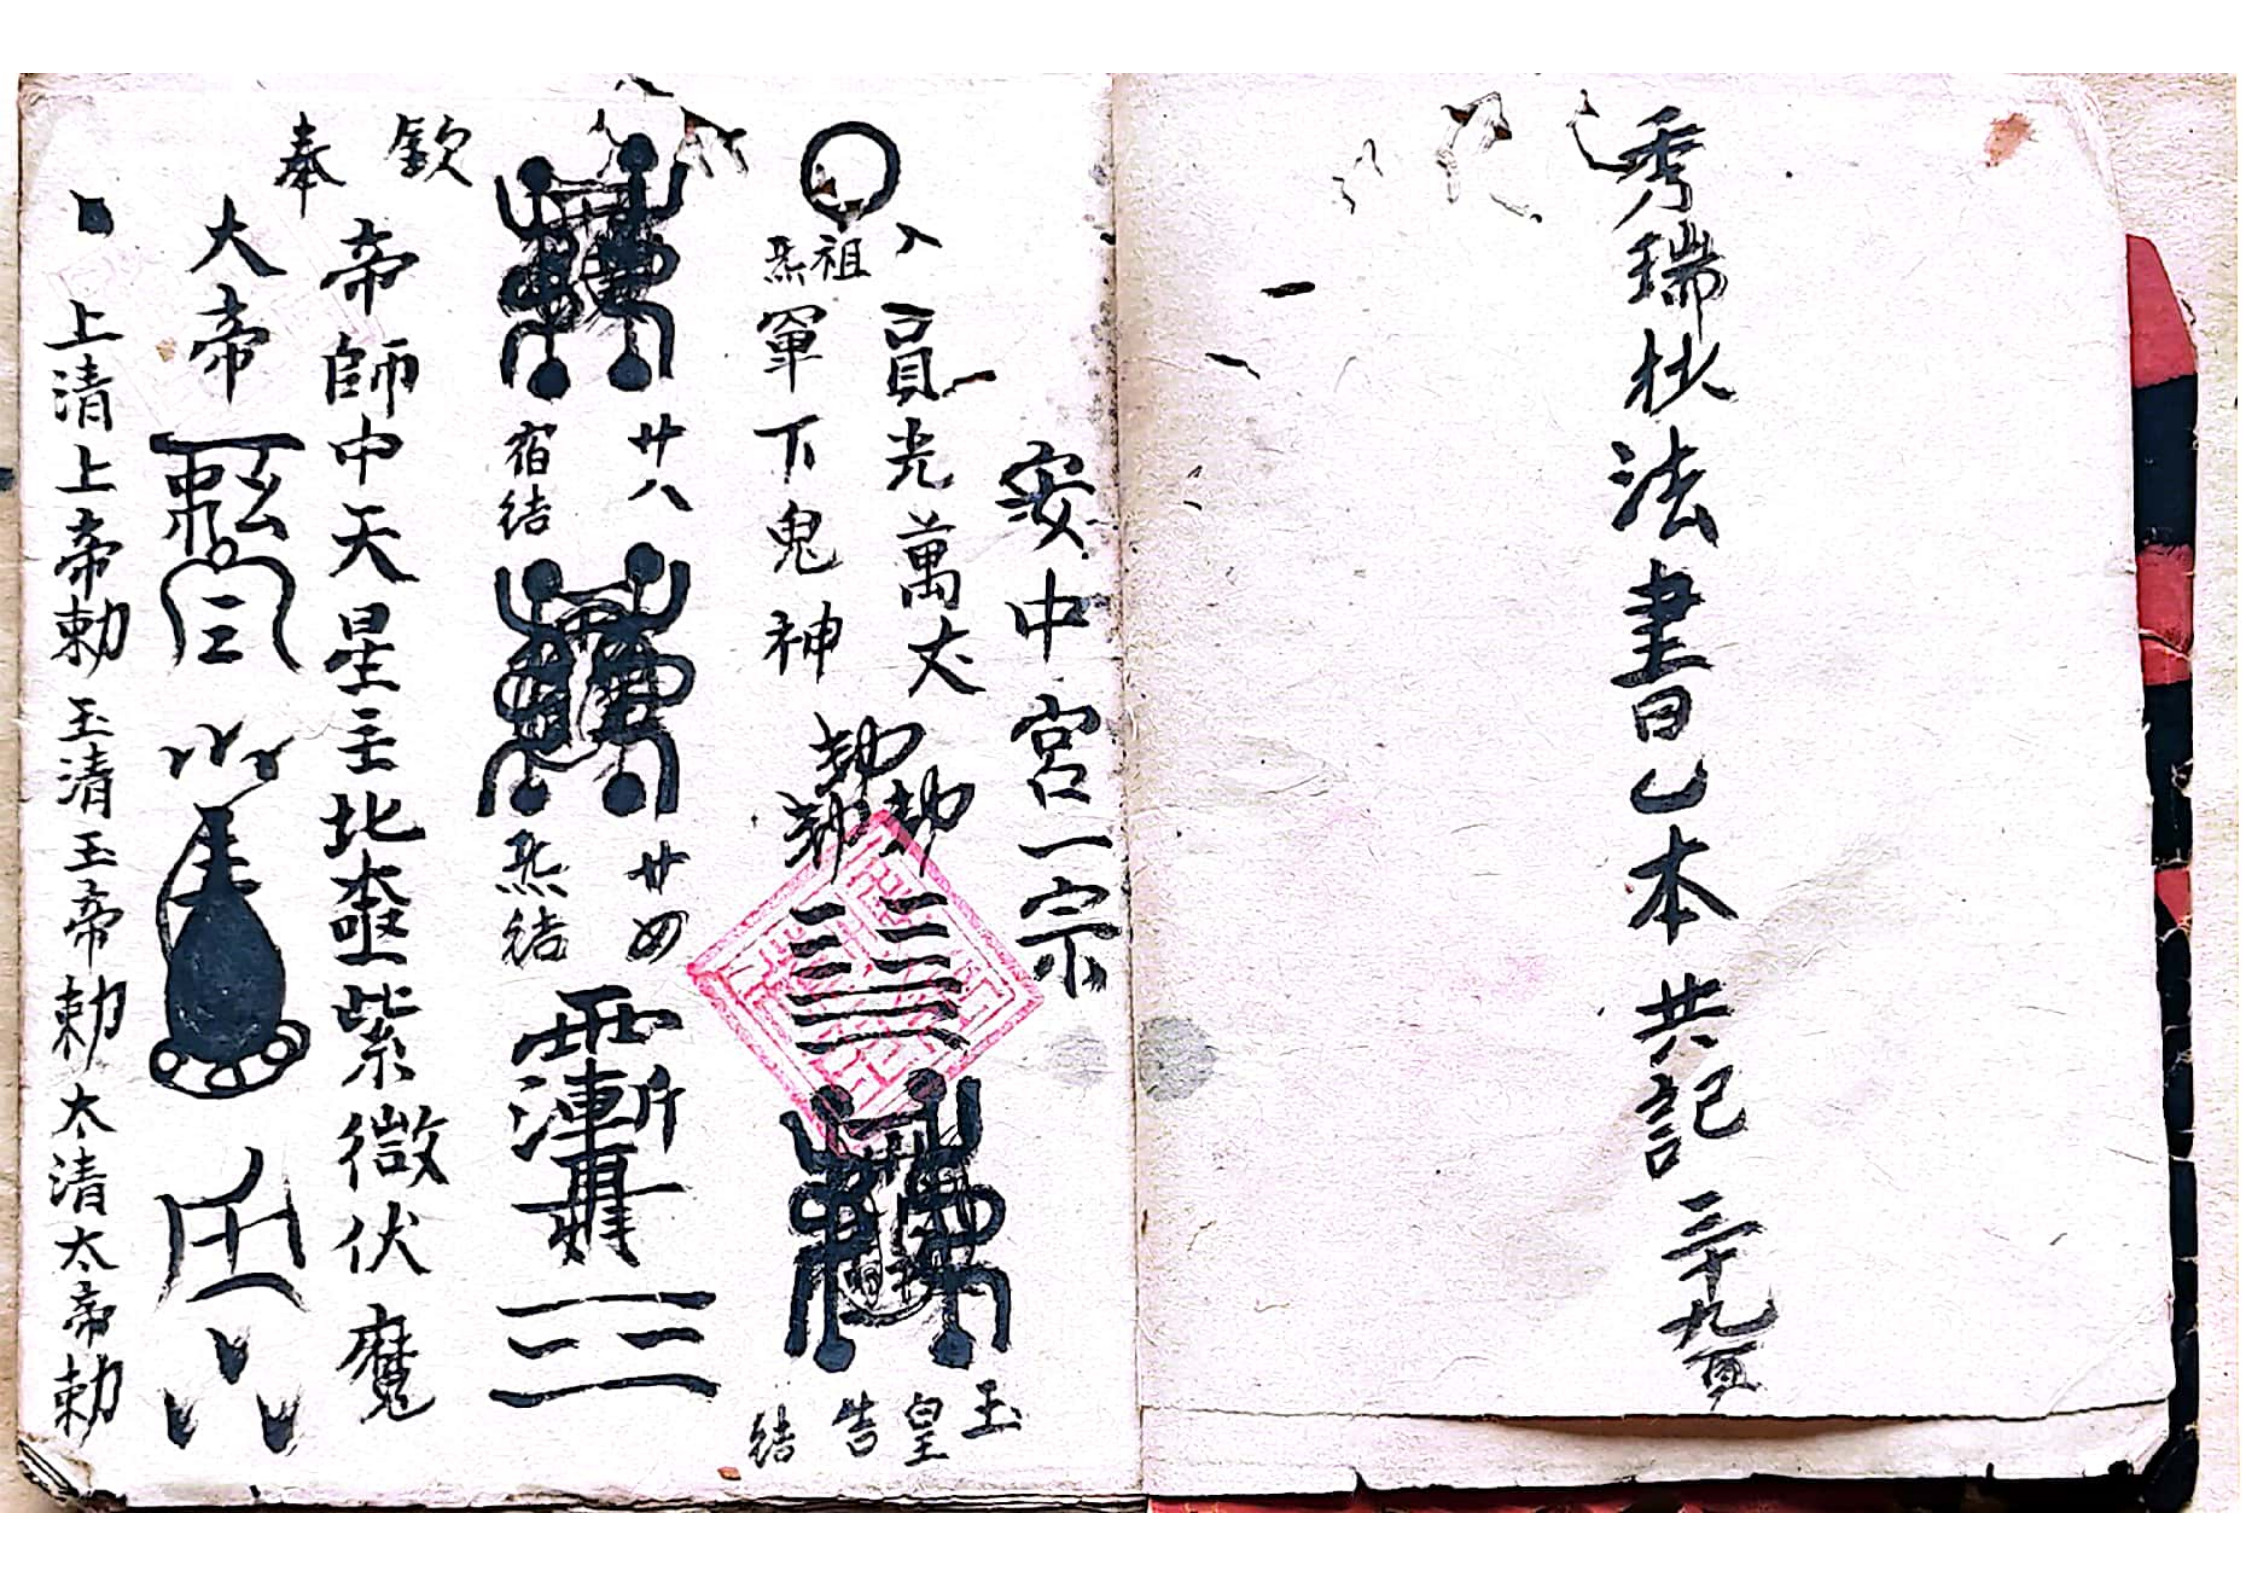 秀瑞杕法書曰乙本共記三十九頁
安中宮一宗
入員光萬丈
祖炁
軍下鬼神
玉皇告結
廿八宿結
廿四炁結
欽奉
帝師中天星主北極紫微伏魔
大帝
上清上帝勅玉清玉帝勅太清太帝勅